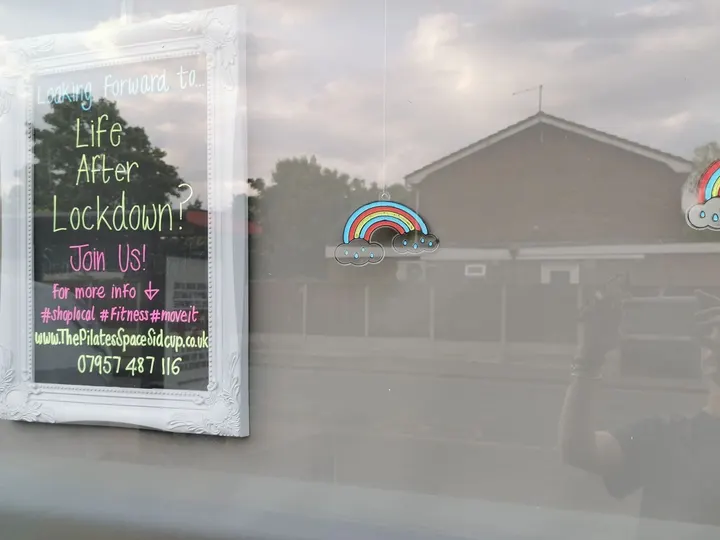 Looking forward to...
Life
After
Lockdown?
Join Us!
for more info ↓
#shoplocal #Fitness #moveit
www.ThePilatesSpaceSidcup.co.uk
07957 487 116